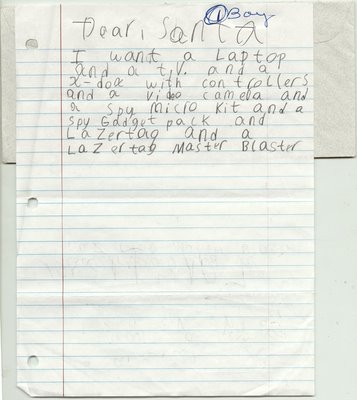 ① Boy
Dear, Santa
I want a Laptop
and a t.v. and a
x-box with controllers
and a video camera and
a spy micro kit and a
spy Gadget pack and
Lazertag and a
Lazertag Master Blaster